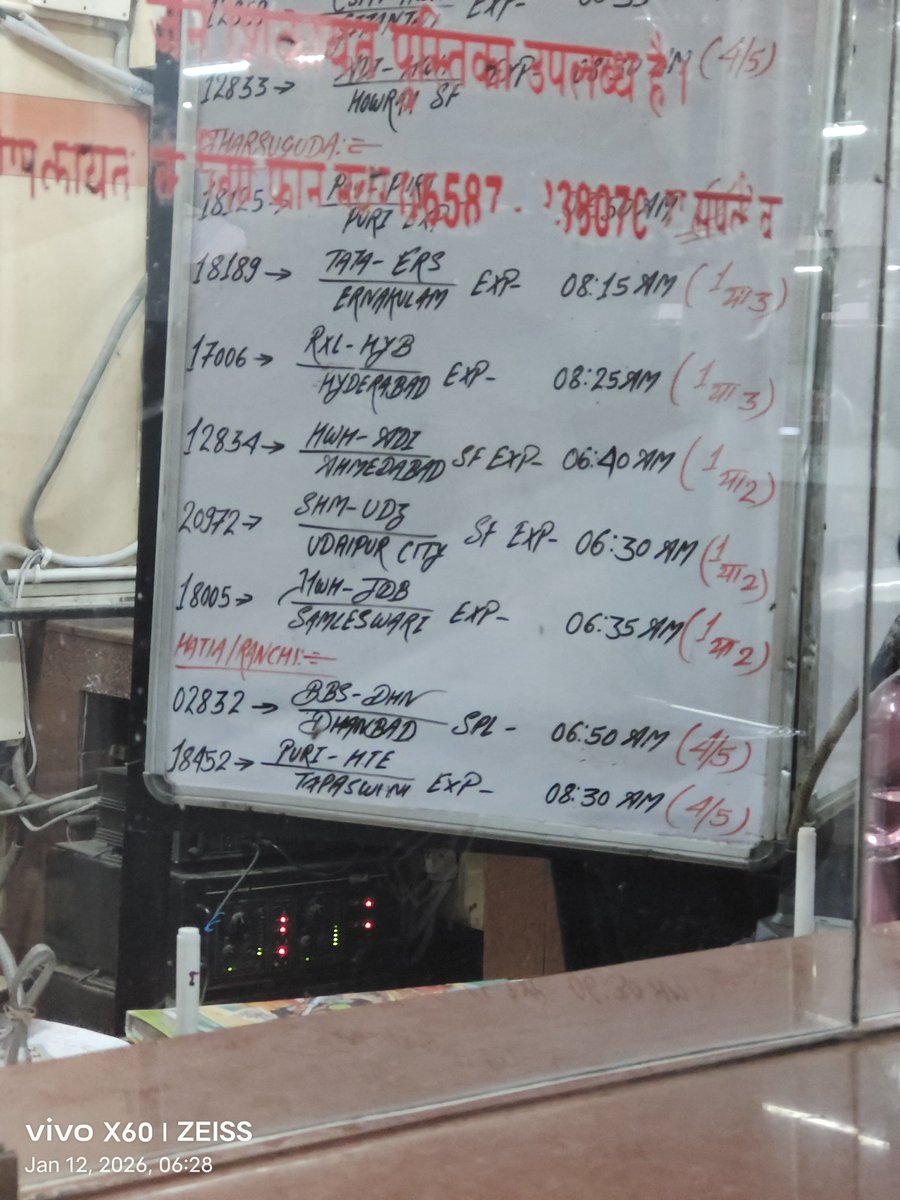 EXP-
शिकायत पुस्तिका उपलब्ध है।
12833→ HOWRAH SF EXP (4/5)
JHARSUGUDA:=
के लिए फोन
18125→ PURI
18189→ TATA-ERS
ERNAKULAM EXP- 08:15 AM (1 या 3)
17006→ RXL-HYB
HYDERABAD EXP- 08:25 AM (1 या 3)
12834→ HWH-ADI
AHMEDABAD SF EXP- 06:40 AM (1 या 2)
20972→ SHM-UDZ
UDAIPUR CITY SF EXP- 06:30 AM (1 या 2)
18005→ HWH-JDB
SAMLESWARI EXP- 06:35 AM (1 या 2)
HATIA/RANCHI:=
02832→ BBS-DHN
DHANBAD SPL- 06:50 AM (4/5)
18452→ PURI-HTE
TAPASWINI EXP- 08:30 AM (4/5)
vivo X60 | ZEISS
Jan 12, 2026, 06:28